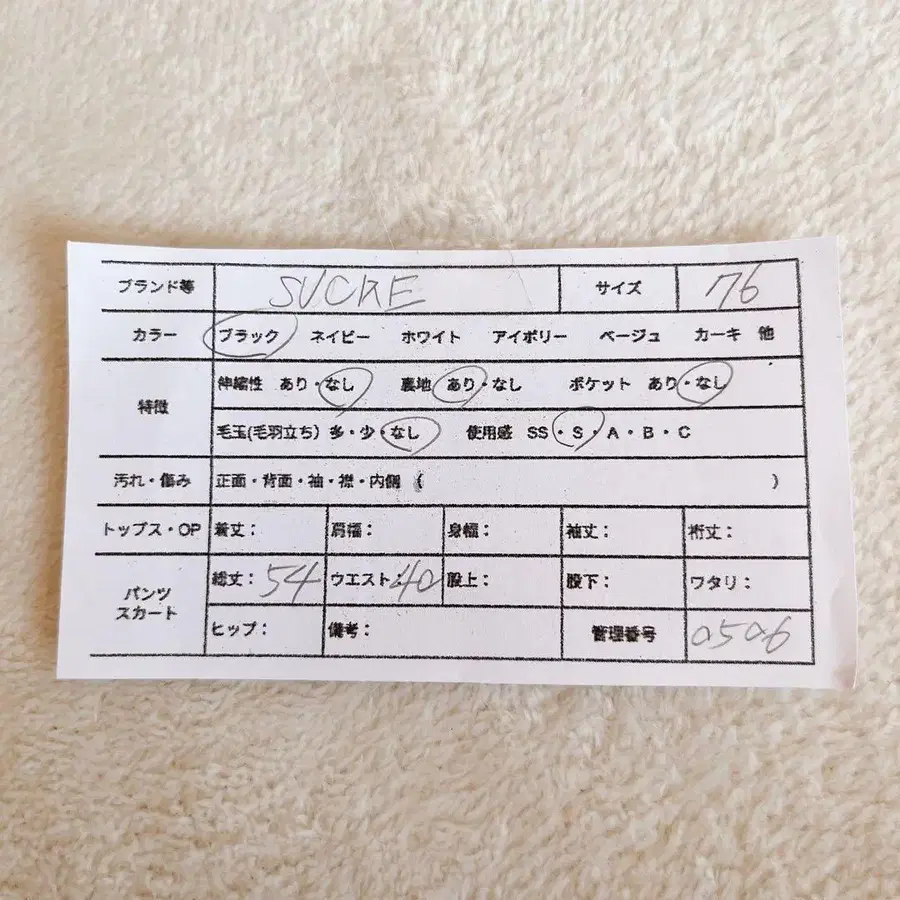 ブランド等 SUCRE サイズ 76
カラー ブラック ネイビー ホワイト アイボリー ベージュ カーキ 他
特徴
伸縮性 あり・なし 裏地 あり・なし ポケット あり・なし
毛玉(毛羽立ち) 多・少・なし 使用感 SS・S・A・B・C
汚れ・傷み 正面・背面・袖・襟・内側 ( )
トップス・OP 着丈: 肩幅: 身幅: 袖丈: 裄丈:
パンツ
スカート
総丈: 54 ウエスト: 40 股上: 股下: ワタリ:
ヒップ: 備考: 管理番号 0506